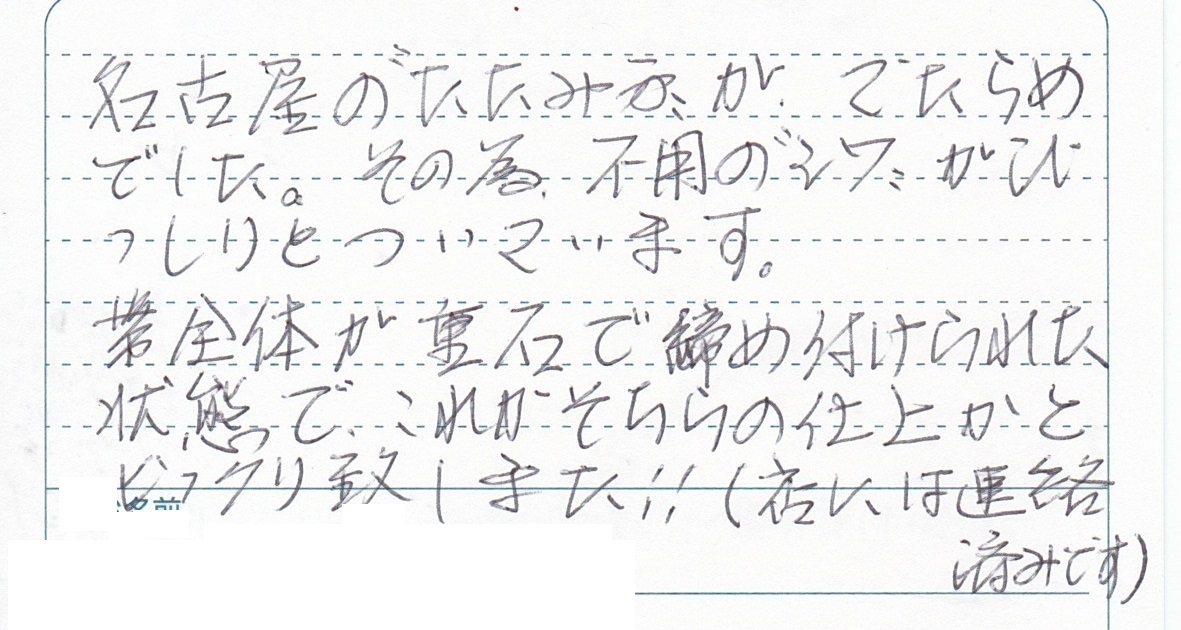 名古屋のたたみ方が、でたらめ
でした。その為、不用のシワがび
っしりとついています。
帯全体が重石で締め付けられた
状態で、これがそちらの仕上かと
ビックリ致しました!!(店には連絡
名前
済みです)